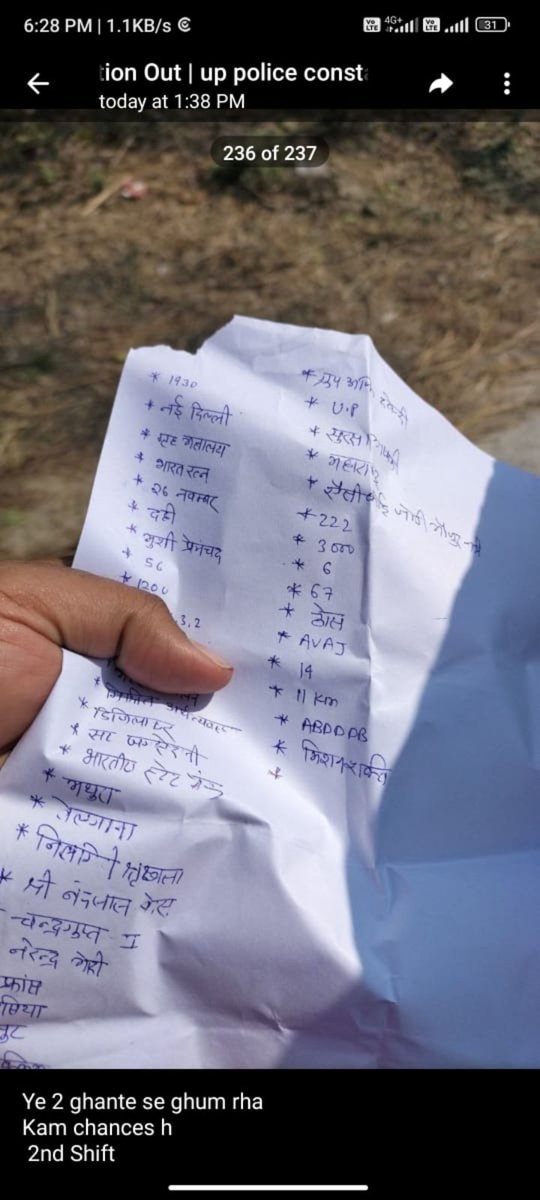 6:28 PM | 1.1KB/s
Vo LTE 4G+ Vo LTE 31
tion Out | up police const
today at 1:38 PM
236 of 237
* 1930
* नई दिल्ली
* गृह मंत्रालय
* भारत रत्न
* 26 नवम्बर
* दही
* मुंशी प्रेमचंद
* 56
* 120
3, 2
* मिश्रित अर्थव्यवस्था
* डिजिलॉकर
* भारतीय स्टेट बैंक
* मथुरा
* तेलंगाना
* निलगिरी
* श्री नंदलाल
चन्द्रगुप्त I
नरेन्द्र मोदी
फ्रांस
* U.P
* महाराष्ट्र
* 222
* 3000
* 6
* 67
* ठोस
* AVAJ
* 14
* 11 Km
* ABDDDB
* मिशन शक्ति
*
Ye 2 ghante se ghum rha
Kam chances h
2nd Shift